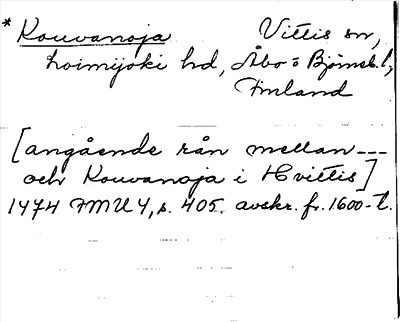 * Kouvanoja Vittis sn,
Loimijoki hd, Åbo o Björneb. l,
Finland
[angående rån mellan ---
och Kouvanoja i Hvittis]
1474 FMU 4, s. 405. avskr. fr. 1600-t.